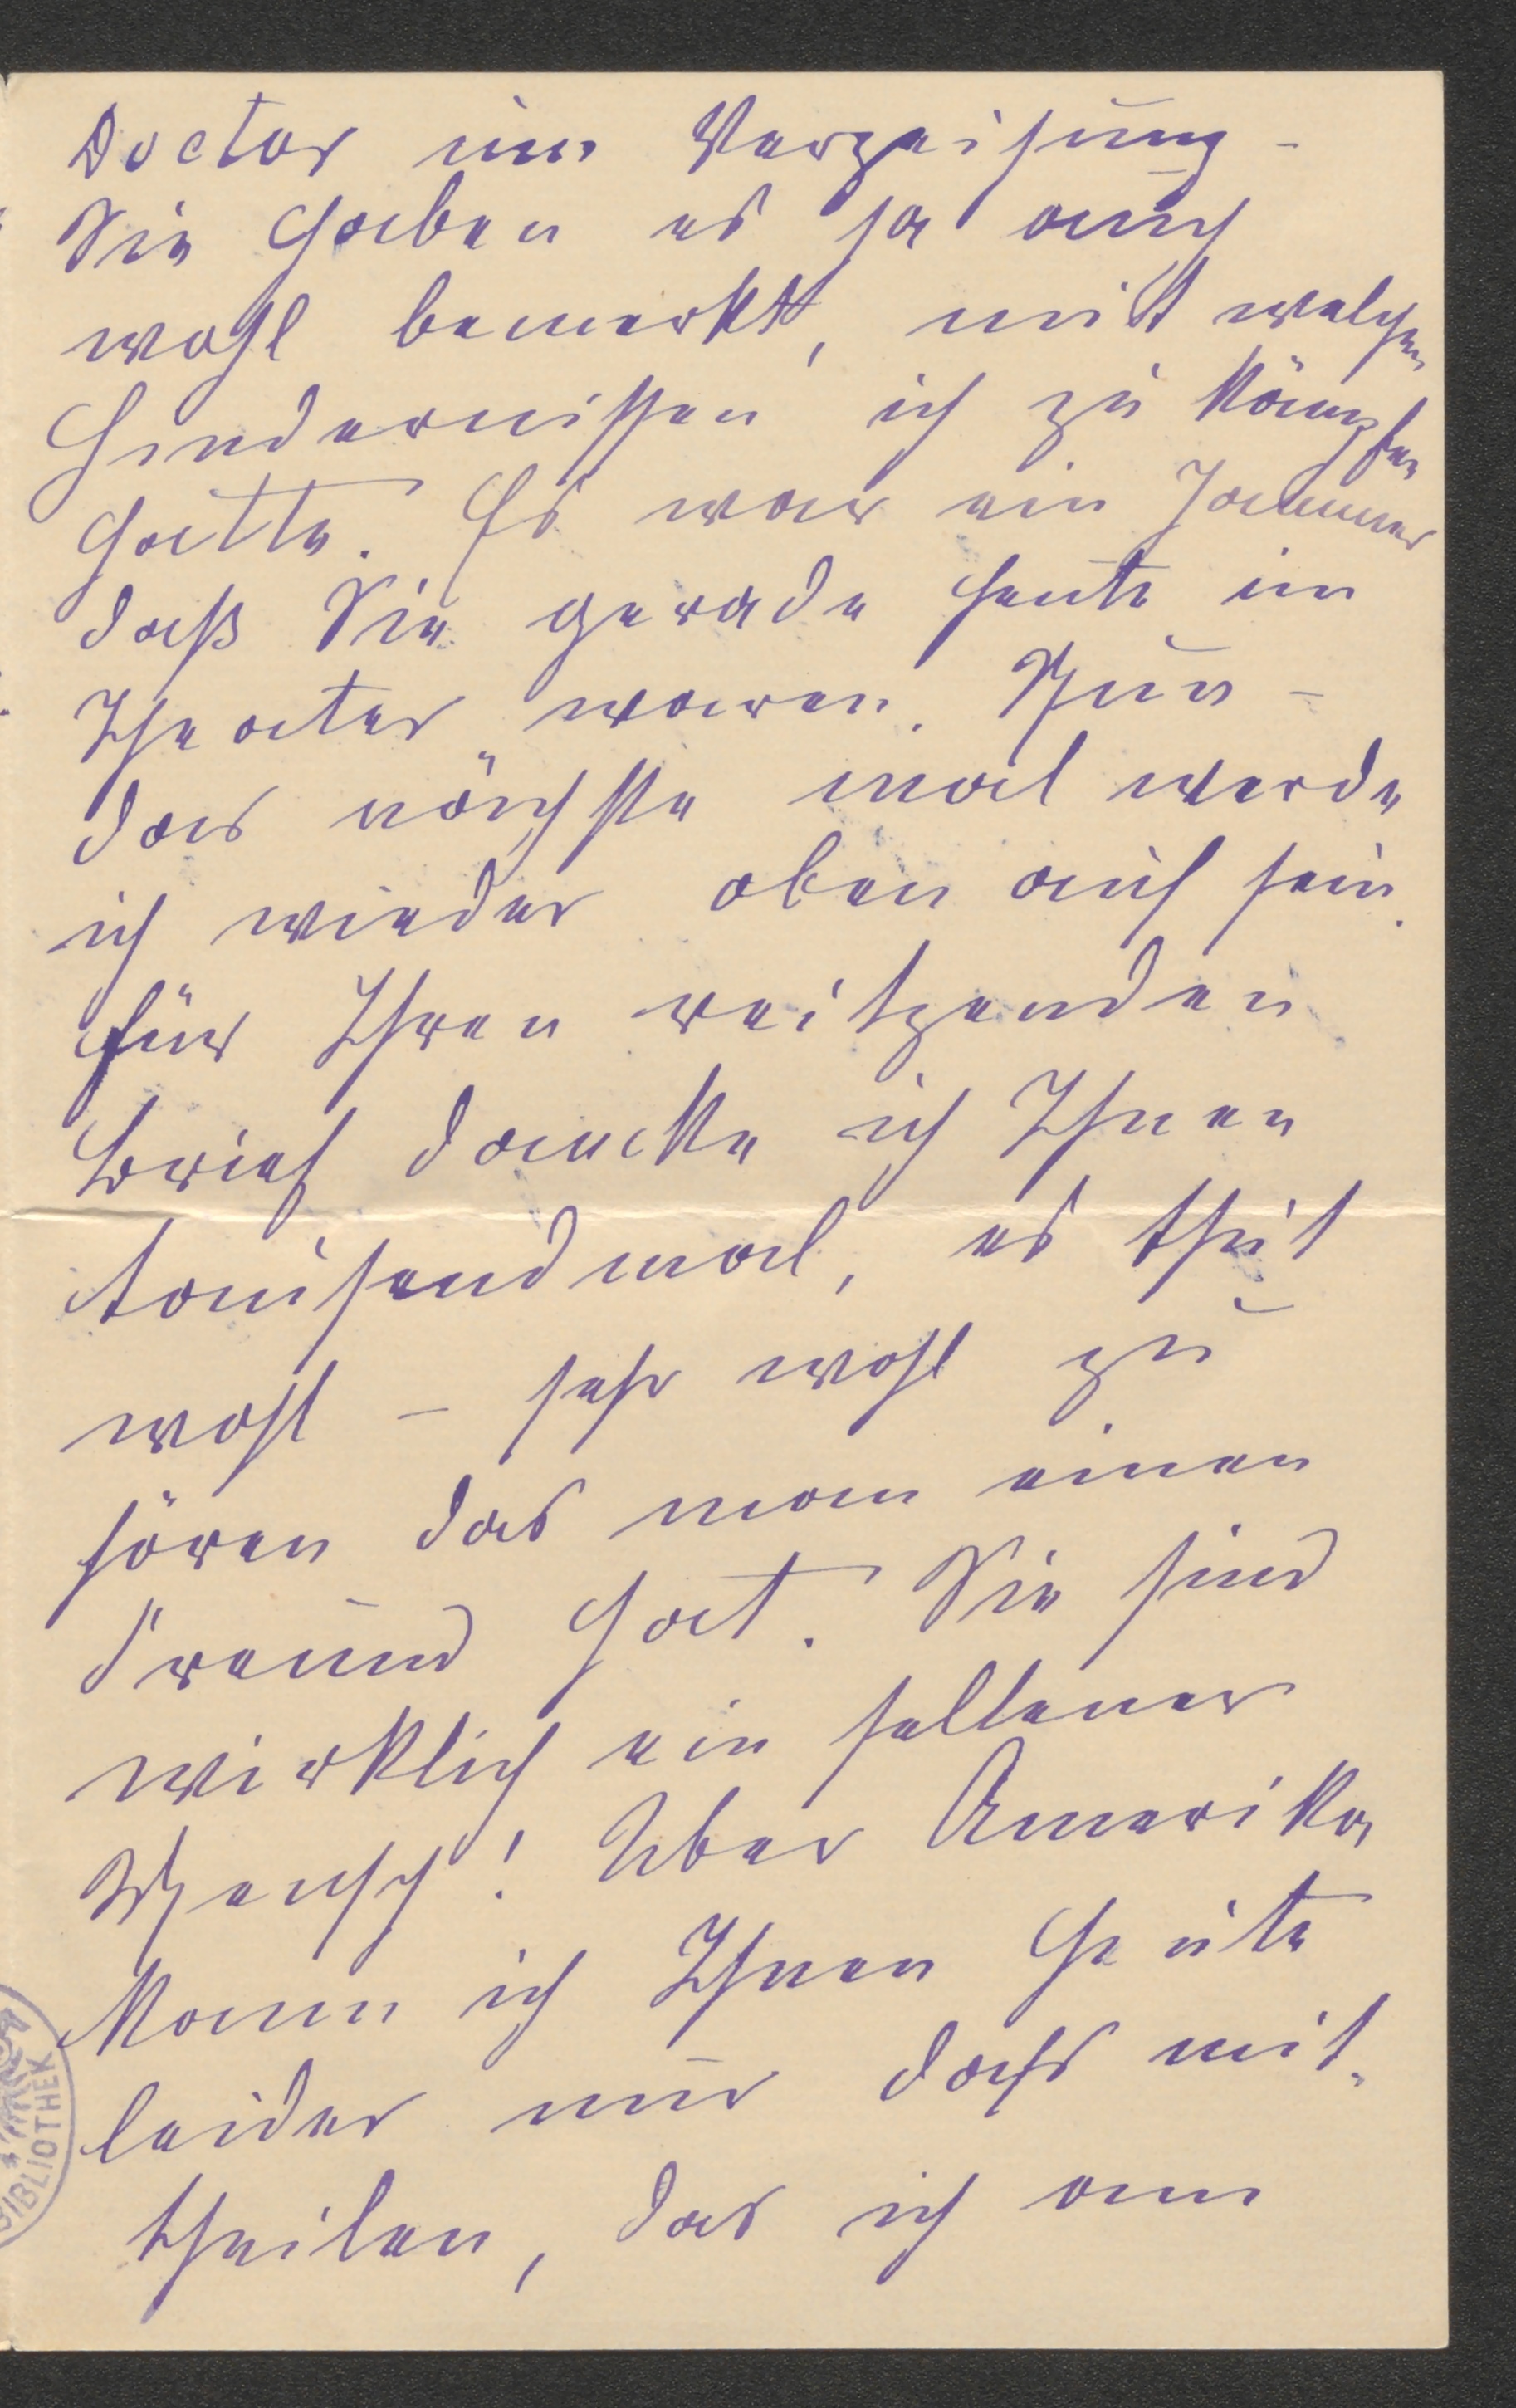 Doctor um Verzeihung –
Sie haben es ja auch
wohl bemerkt, mit welchen
Hindernissen ich zu kämpfen
hatte. Es war ein Jammer
daß Sie gerade heute im
Theater waren. Nun –
das nächste mal werde
ich wieder oben auf sein.
für Ihren reitzenden
Brief dancke ich Ihnen
tausendmal, es thut
wohl – sehr wohl zu
hören das man einen
Freund hat. Sie sind
wirklich ein seltener
Mensch! Über Amerika
kann ich Ihnen heute
leider nur dahs mit-
theilen, das ich am
BIBLIOTHEK